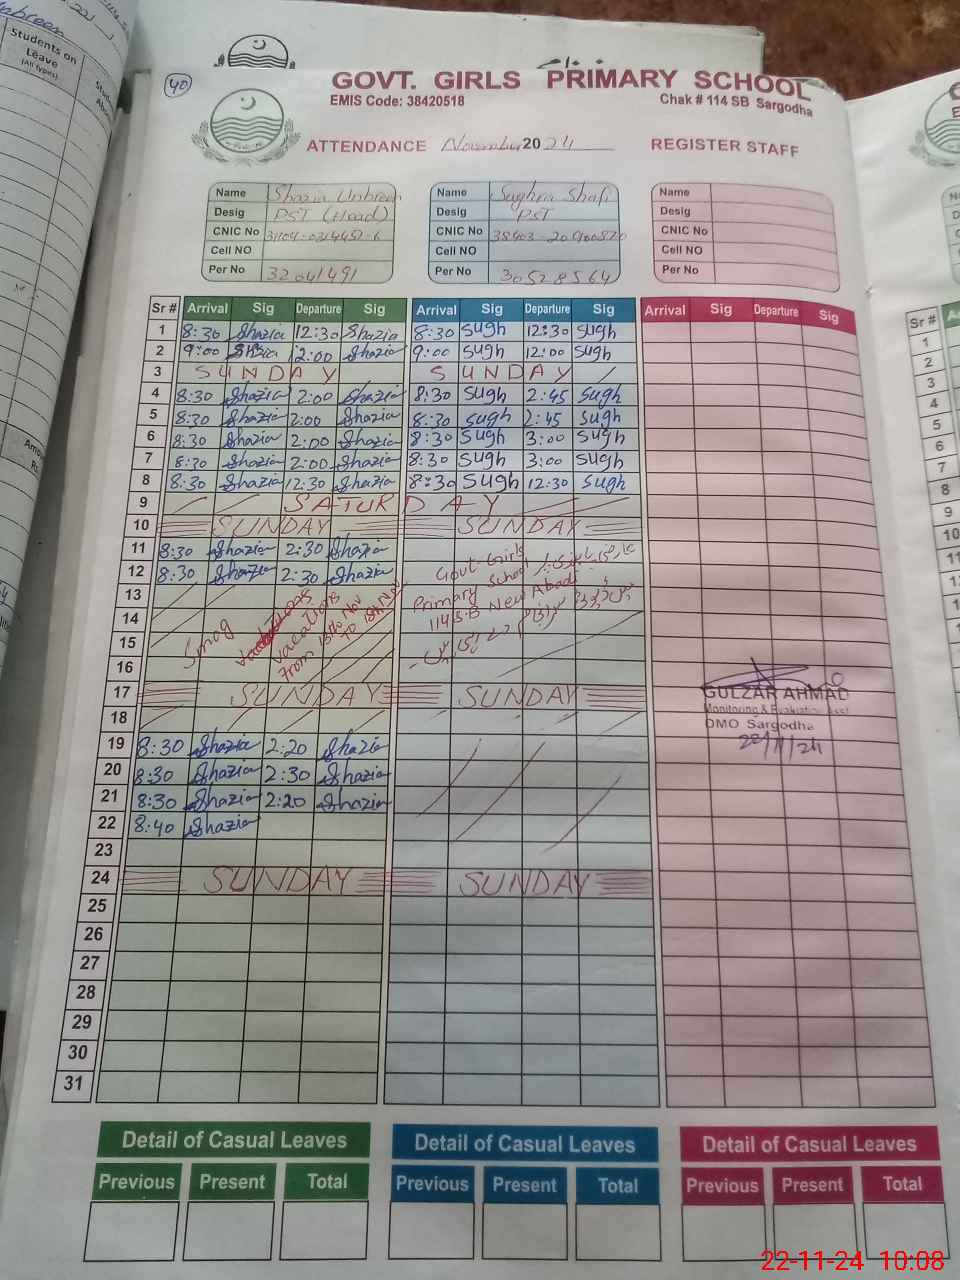 Students on
Leave
(All types)
40
GOVT. GIRLS PRIMARY SCHOOL
EMIS Code: 38420518 Chak # 114 SB Sargodha
ATTENDANCE November 2024 REGISTER STAFF
Name Shazia Unbreen Name Sughra Shafi Name
Desig PST (Head) Desig PST Desig
CNIC No CNIC No CNIC No
Cell NO Cell NO Cell NO
Per No 32041491 Per No 30528564 Per No
Sr # Arrival Sig Departure Sig Arrival Sig Departure Sig Arrival Sig Departure Sig
1 8:30 Shazia 12:30 Shazia 8:30 Sugh 12:30 Sugh
2 9:00 Shazia 12:00 Shazia 9:00 Sugh 12:00 Sugh
3 SUNDAY SUNDAY
4 8:30 Shazia 2:00 Shazia 8:30 Sugh 2:45 Sugh
5 8:30 Shazia 2:00 Shazia 8:30 Sugh 2:45 Sugh
6 8:30 Shazia 2:00 Shazia 8:30 Sugh 3:00 Sugh
7 8:30 Shazia 2:00 Shazia 8:30 Sugh 3:00 Sugh
8 8:30 Shazia 12:30 Shazia 8:30 Sugh 12:30 Sugh
9 SATURDAY
10 SUNDAY SUNDAY
11 8:30 Shazia 2:30 Shazia Govt. Girls
12 8:30 Shazia 2:30 Shazia Primary School
13 114 S.B New Abadi
14 Smog vacations
15 From 13th Nov
16 To 18th Nov
17 SUNDAY SUNDAY
GULZAR AHMAD
Monitoring & Evaluation Asst
DMO Sargodha
18
19 8:30 Shazia 2:20 Shazia
20 8:30 Shazia 2:30 Shazia
21 8:30 Shazia 2:20 Shazia
22 8:40 Shazia
23
24 SUNDAY SUNDAY
25
26
27
28
29
30
31
Detail of Casual Leaves Detail of Casual Leaves Detail of Casual Leaves
Previous Present Total Previous Present Total Previous Present Total
22-11-24 10:08